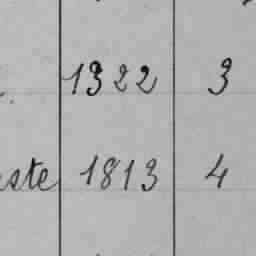 1322 3
este 1813 4